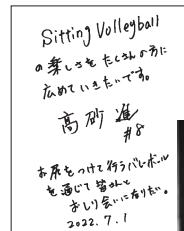 Sitting Volleyball
の楽しさをたくさんの方に
広めていきたいです。
高砂 進
#8
お尻をつけて行うバレーボール
を通じて皆さんと
おしり合いになりたい。
2022.7.1